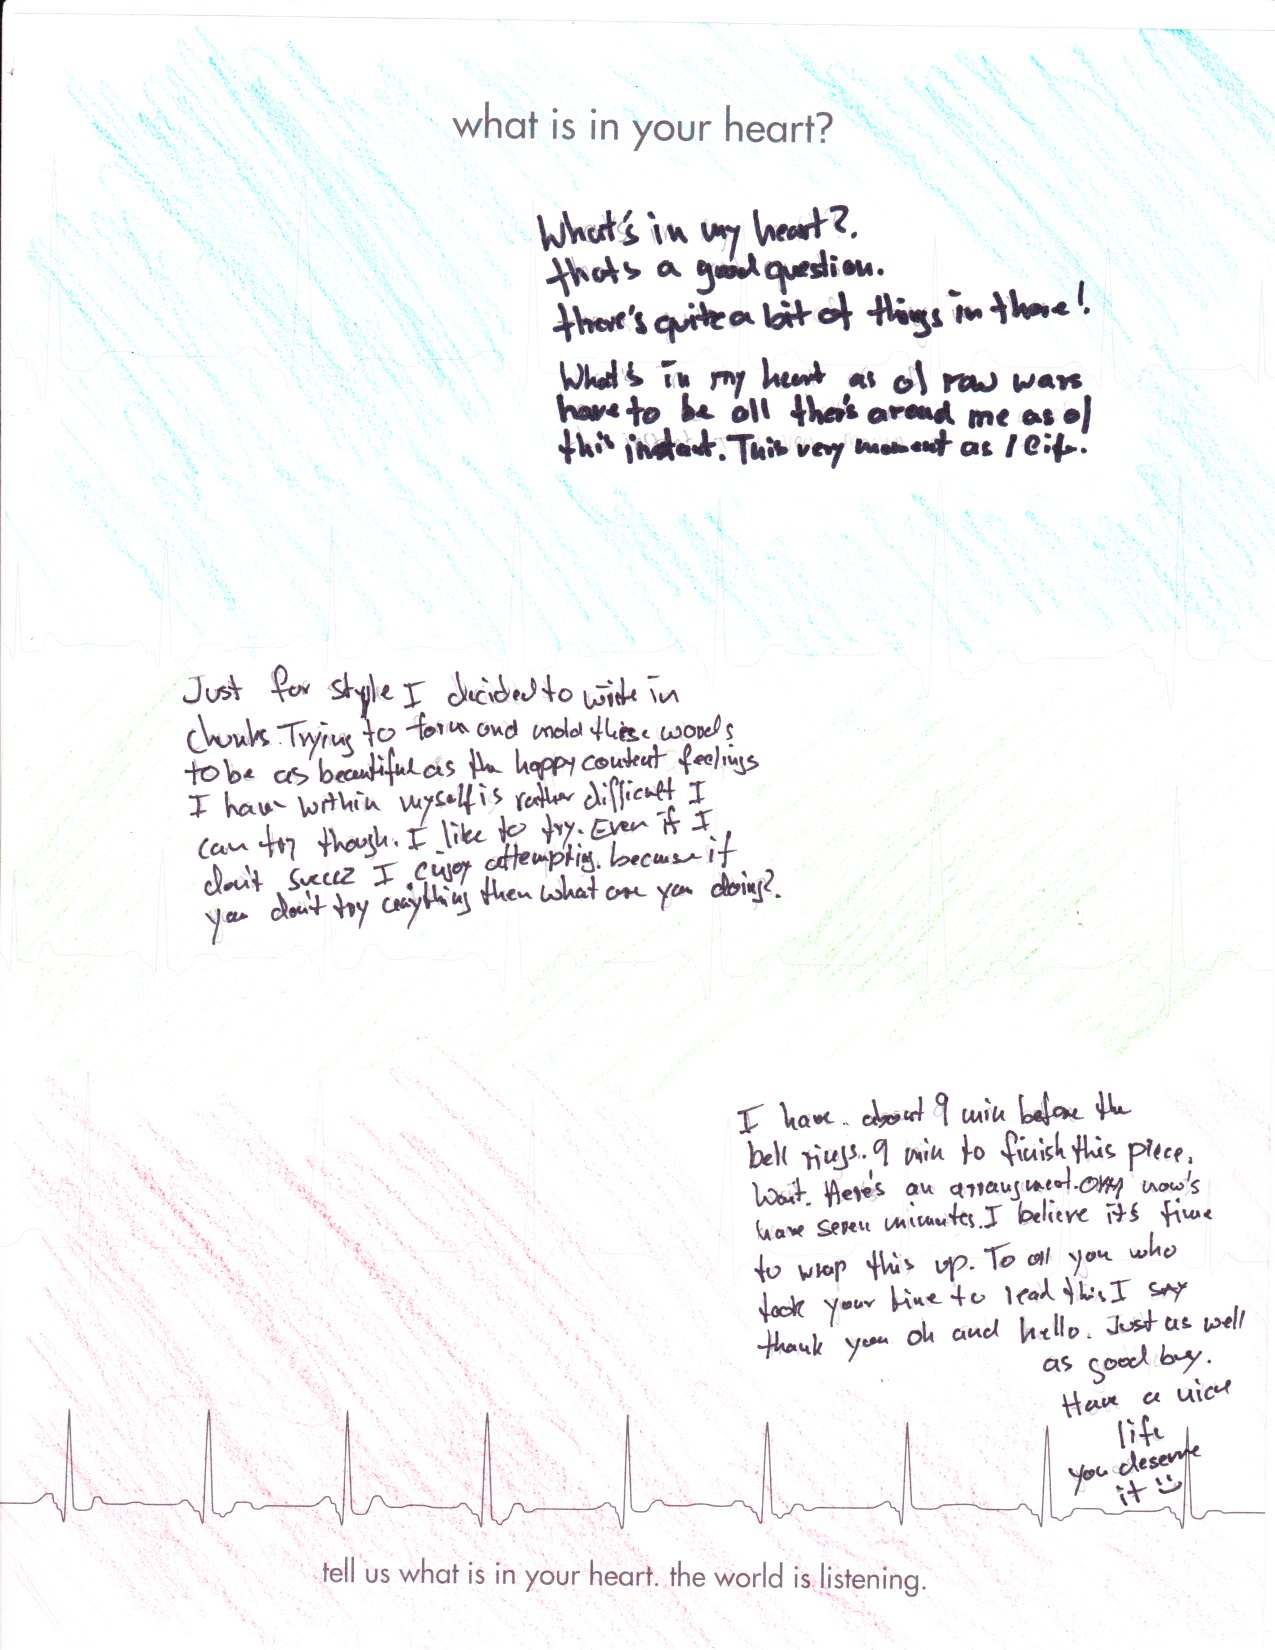 what is in your heart?
What's in my heart?.
thats a good question.
there's quite a bit of things in there!
What's in my heart as of
have to be all that's around me as of
this instant. This very moment as I
Just for style I decided to write in
chunks. Trying to form and mold these words
to be as beautiful as the happy content feelings
I have within myself is rather difficult I
can try though. I like to try. Even if I
don't I enjoy attempting. because if
you don't try anything then what are you doing?.
I have. about 9 min before the
bell rings. 9 min to finish this piece.
Wait. Here's an arrangment. now's
have seven minutes. I believe it's time
to wrap this up. To all you who
took your time to read this I say
thank you oh and hello. Just as well
as good buy.
Have a nice
life
you deserve
it
tell us what is in your heart. the world is listening.